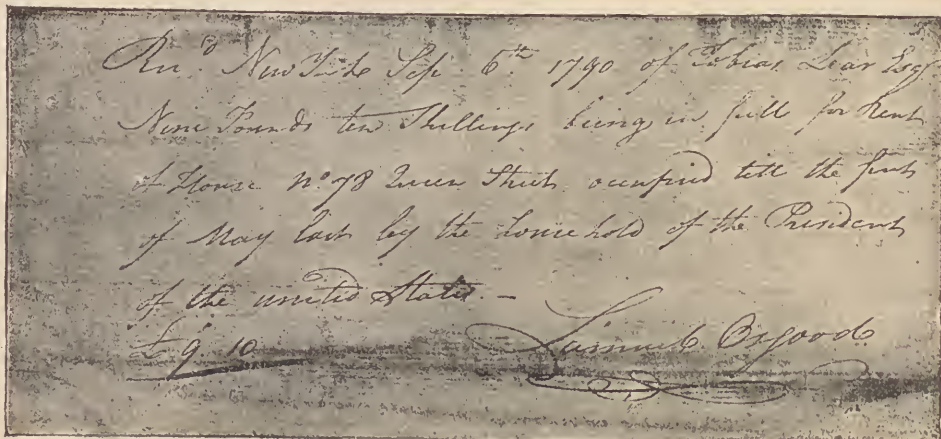 Rec.d New York Sep. 6th 1790 of Tobias Lear Esqr
Nine Pounds ten Shillings being in full for Rent
of House No 78 Queen Street, occupied till the first
of May last by the household of the President
of the united States. –
£ 9. 10
Samuel Osgood